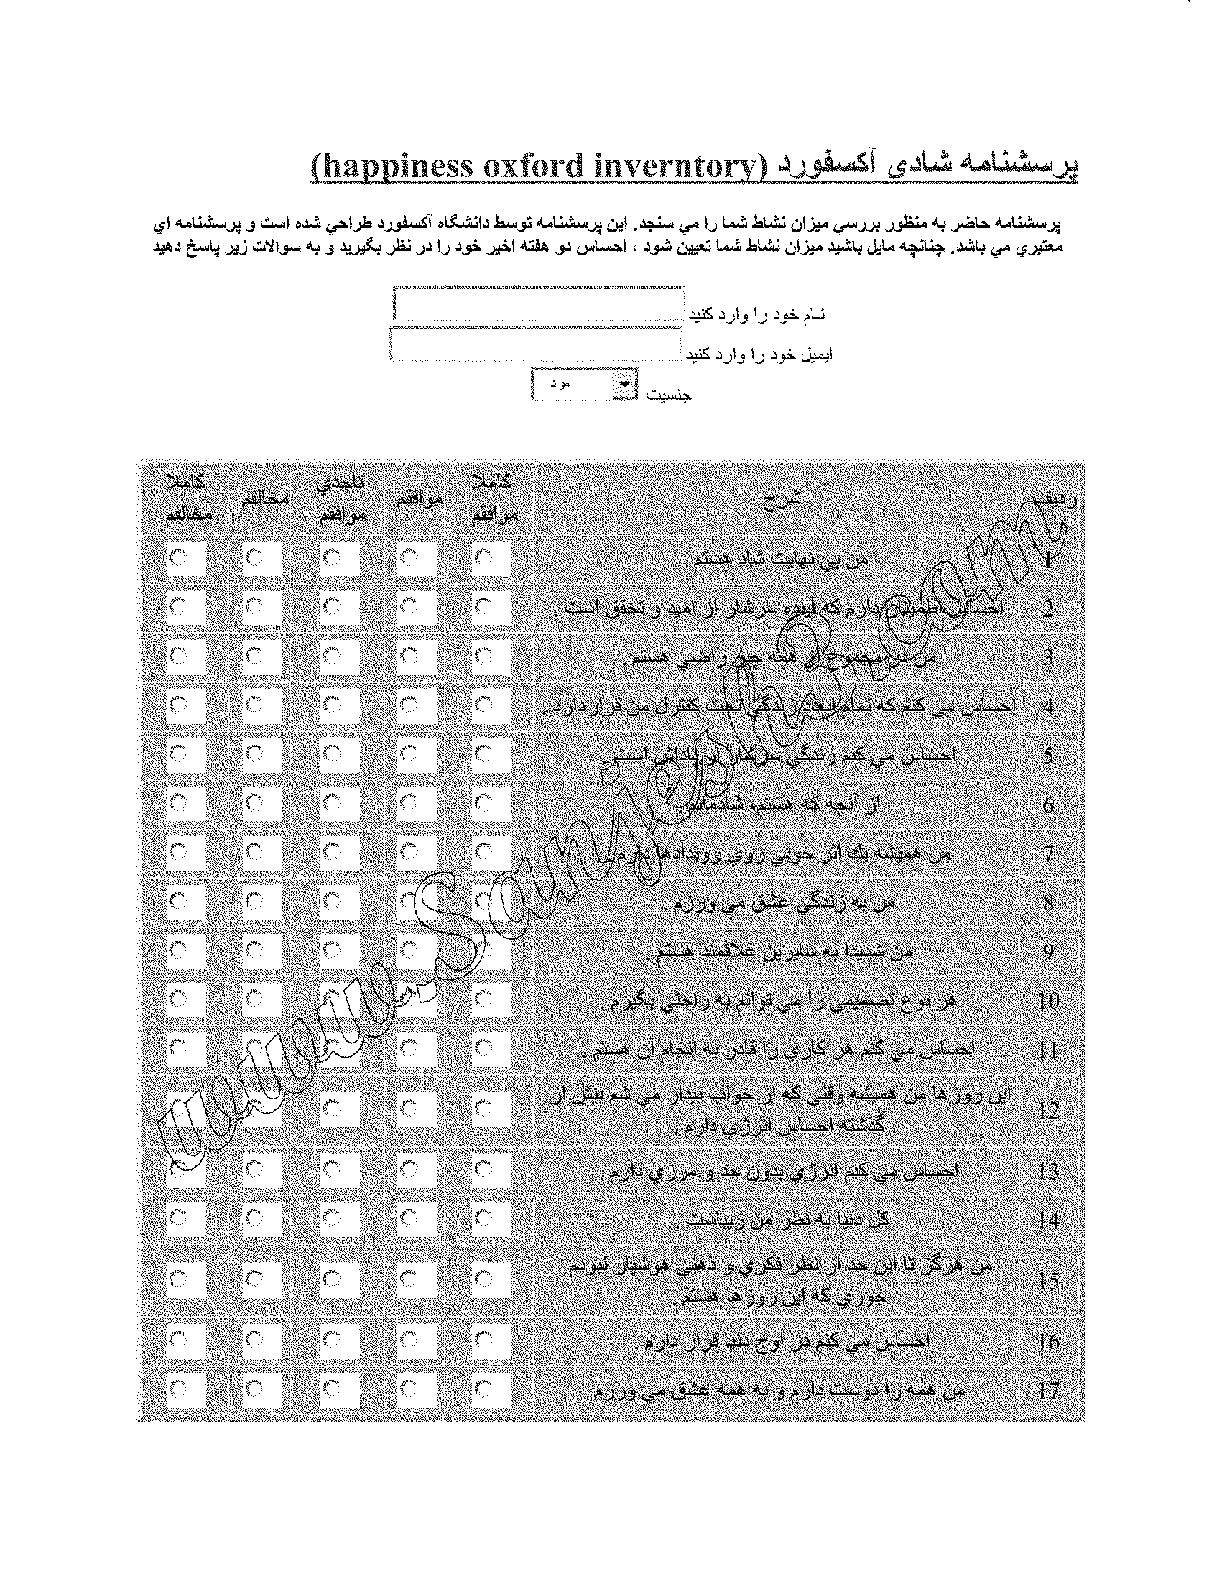 پرسشنامه شادی آکسفورد (happiness oxford inverntory)
پرسشنامه حاضر به منظور بررسي ميزان نشاط شما را مي سنجد. اين پرسشنامه توسط دانشگاه آكسفورد طراحي شده است و پرسشنامه اي
معتبري مي باشد. چنانچه مايل باشيد ميزان نشاط شما تعيين شود ، احساس دو هفته اخير خود را در نظر بگيريد و به سوالات زير پاسخ دهيد
نام خود را وارد كنيد
ايميل خود را وارد كنيد
جنسيت مرد
رديف شرح كاملا موافقم موافقم تاحدي موافقم مخالفم كاملا مخالفم
1 من بي نهايت شاد هستم
2 احساس اطمينان دارم كه آينده سرشار از اميد و است
3 من از همه چيز راضي هستم
4 احساس مي كنم كه تمام زندگي تحت كنترل من قرار دارد
5 احساس مي كنم زندگي سرشار از است
6 از آنچه كه هستم شادمانم
7 من هميشه يك اثر خوبي روي رويدادها دارم
8 من به زندگي عشق مي ورزم
9 من به ديگران علاقمند هستم
10 هر نوع تصميمي را مي توانم به راحتي بگيرم
11 احساس مي كنم هر كاري را قادر به انجام آن هستم .
12 اين روزها من هميشه وقتي كه از خواب بيدار مي شوم بيش از
گذشته احساس انرژي دارم .
13 احساس مي كنم انرژي بدون حد و مرزي دارم
14 كل دنيا به نظر من زيباست .
15 من هرگز تا اين حد از نظر فكري و ذهني هوشيار نبودم
جوري كه اين روزها هستم .
16 احساس مي كنم در اوج دنيا قرار دارم
17 من همه را دوست دارم و به همه عشق مي ورزم